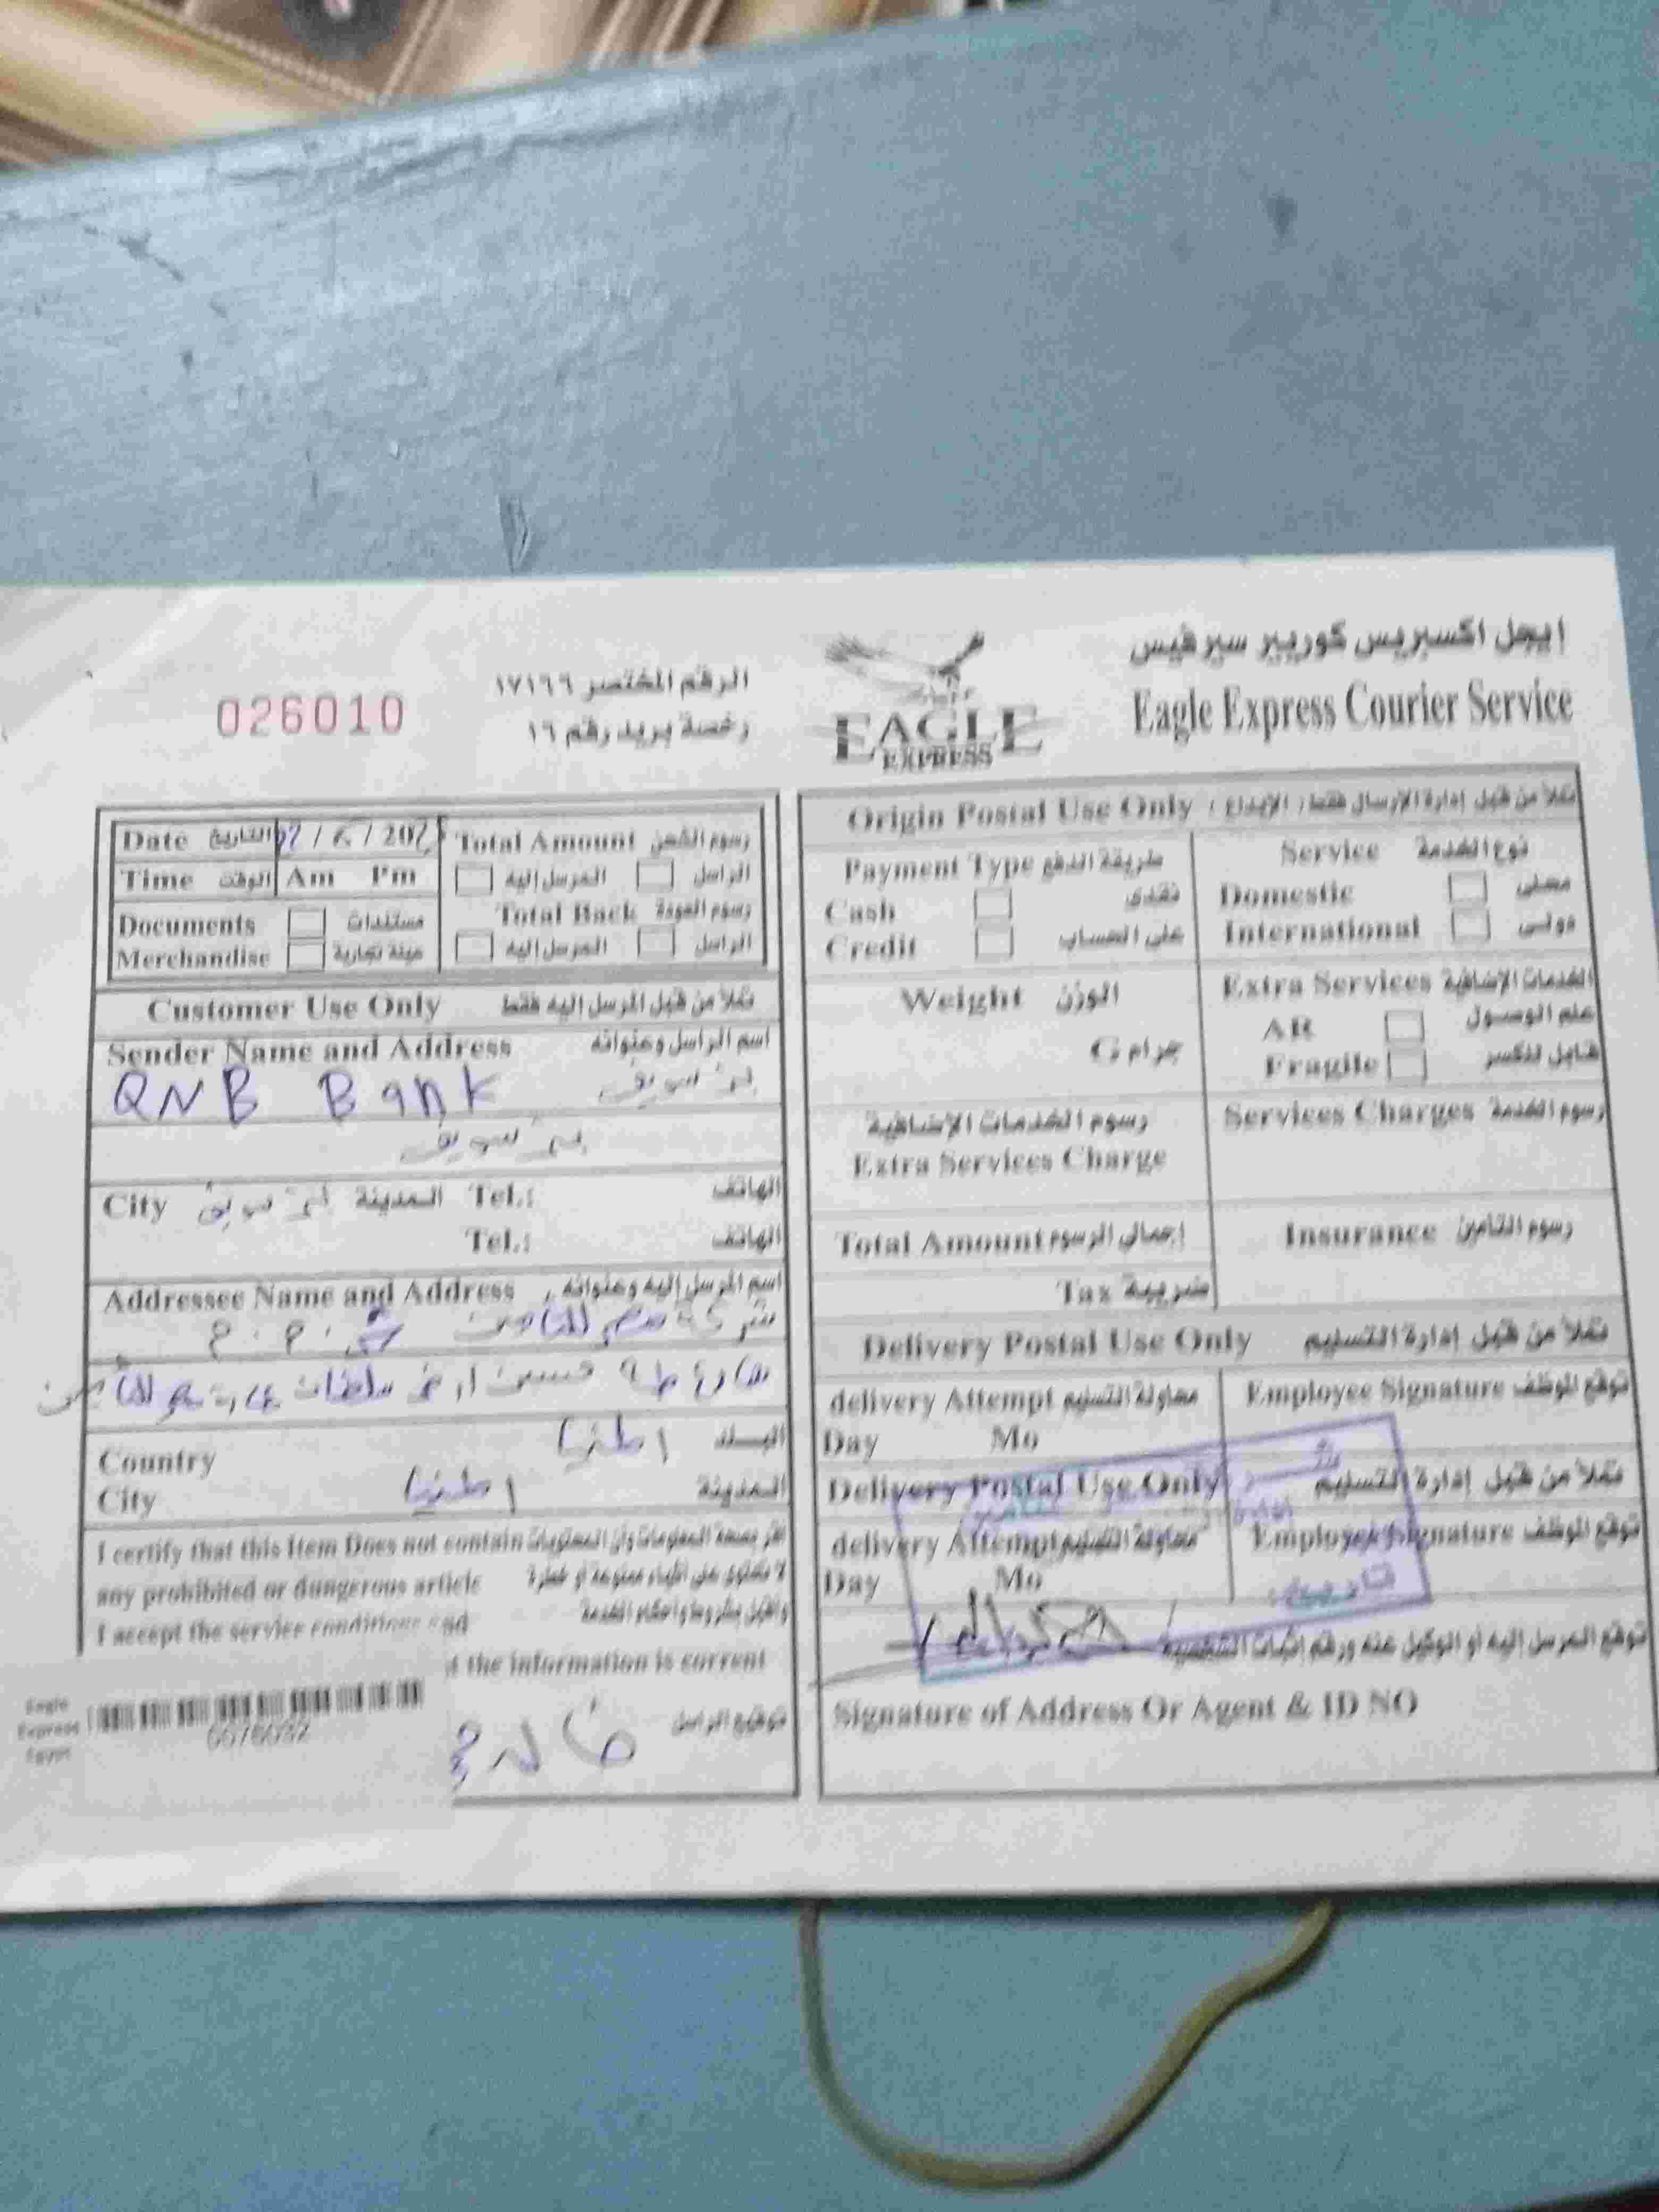 إيجل اكسبريس كوريير سيرفيس
Eagle Express Courier Service
EAGLE
EXPRESS
الرقم المختصر ١٧١٦٦
رخصة بريد رقم ١٦
026010
Date التاريخ / 202
Time الوقت Am Pm
Documents مستندات
Merchandise عينة تجارية
Total Amount رسوم الشحن
المرسل إليه الراسل
Total Back رسوم العودة
المرسل إليه الراسل
Customer Use Only تملأ من قبل المرسل إليه فقط
Sender Name and Address اسم الراسل وعنوانه
QNB Bank بنى سويف
بنى سويف
City بنى سويف المدينة Tel.: الهاتف
Tel.: الهاتف
Addressee Name and Address اسم المرسل إليه وعنوانه
شركة مصر للتأمين
Country البلد
City المدينة
I certify that this Item Does not contain
any prohibited or dangerous article
I accept the service conditions and
the information is correct
Eagle
Express
Egypt
توقيع الراسل
Origin Postal Use Only تملأ من قبل إدارة الإرسال فقط ( الإيداع )
Payment Type طريقة الدفع
Cash نقدى
Credit على الحساب
Service نوع الخدمة
Domestic محلى
International دولى
Weight الوزن
جرام G
Extra Services الخدمات الإضافية
AR علم الوصول
Fragile قابل للكسر
رسوم الخدمات الإضافية
Extra Services Charge
Services Charges رسوم الخدمة
Total Amount إجمالى الرسوم
Insurance رسوم التأمين
Tax ضريبة
Delivery Postal Use Only تملأ من قبل إدارة التسليم
delivery Attempt محاولة التسليم
Employee Signature توقيع الموظف
Day Mo
Delivery Postal Use Only تملأ من قبل إدارة التسليم
delivery Attempt محاولة التسليم
Employee Signature توقيع الموظف
Day Mo
توقيع المرسل إليه أو الوكيل عنه ورقم إثبات الشخصية
Signature of Address Or Agent & ID NO